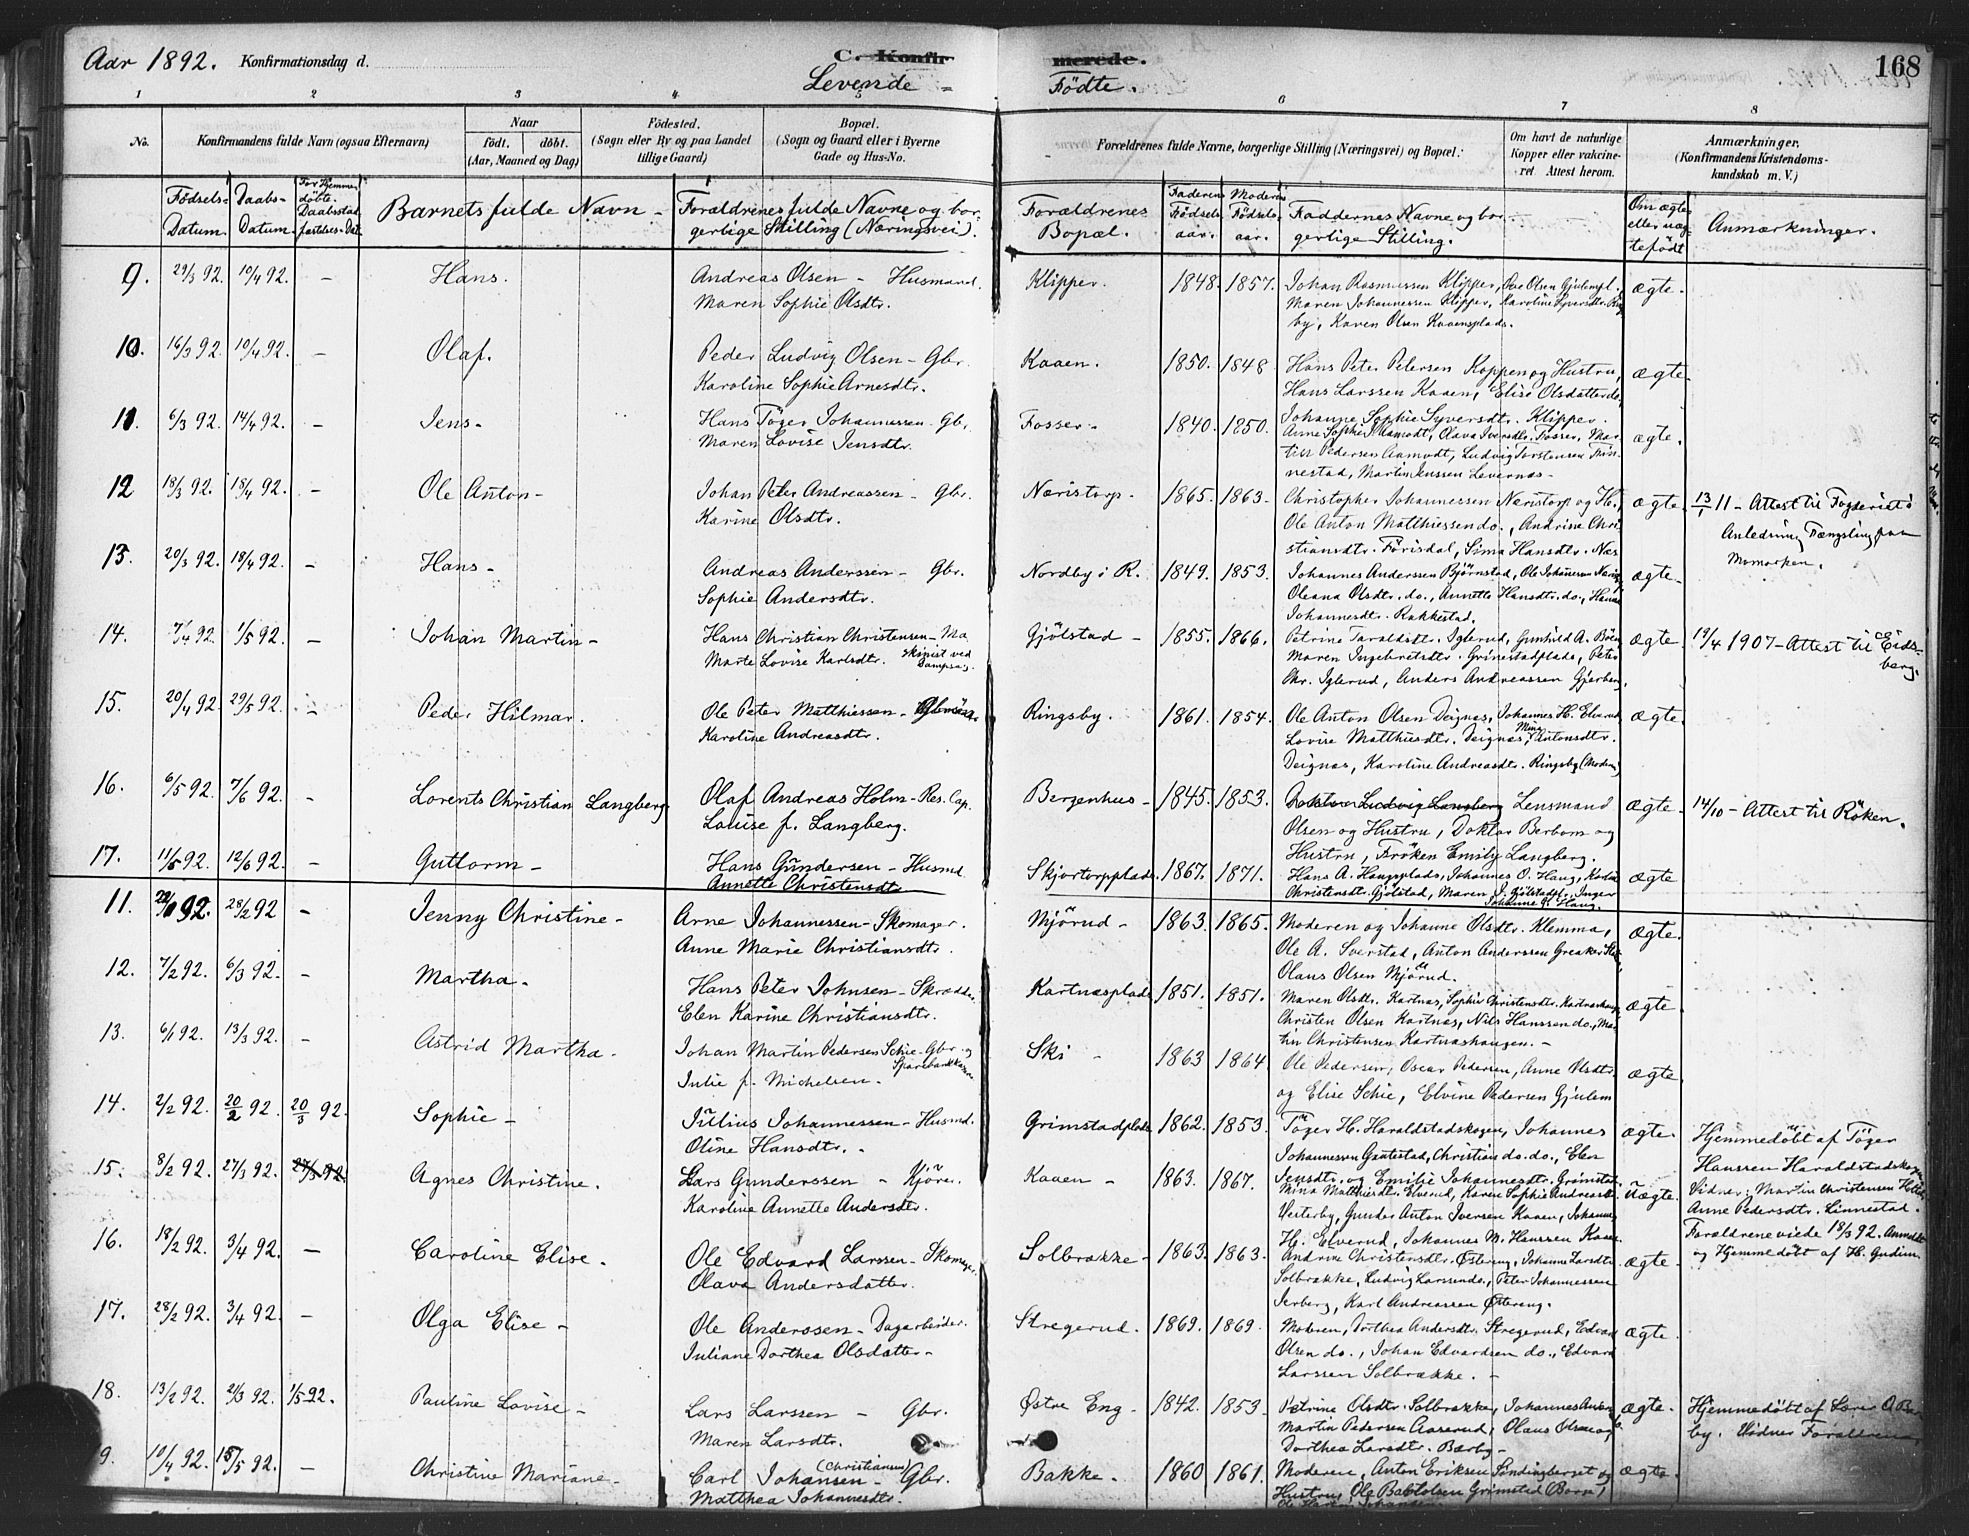 Aar 1892. Konfirmationsdag d. C. Konfirmerede. 168
Levende - Födte.
1 2 3 4 5 6 7 8
No. Konfirmandens fulde Navn (ogsaa Efternavn) Naar födt. döbt. (Aar, Maaned og Dag) Födested. (Sogn eller By og paa Landet tillige Gaard) Bopæl. (Sogn og Gaard eller i Byerne Gade og Hus-No. Forældrenes fulde Navne, borgerlige Stilling (Næringsvei) og Bopæl. Om havt de naturlige Kopper eller vakcineret. Attest herom. Anmærkninger, (Konfirmandens Kristendomskundskab m. V.)
Födsels-Datum. Daabs-Datum. For Hjemmedöbte Daabsstadfæstelses-Dat. Barnets fulde Navn - Forældrenes fulde Navne og borgerlige Stilling (Næringsvei). Forældrenes Bopæl. Faderens Födselsaar. Moderens Födselsaar. Faddernes Navne og borgerlige Stilling. Om ægte eller uægtefödt Anmærkninger.
9. 29/3 92. 10/4 92. - Hans. Andreas Olsen - Husmand. Klipper. 1848. 1857. Johan Rasmussen Klipper, ægte.
Maren Sophie Olsdtr. Maren Johannessen Klipper,
by, Karen Olsen Kaaensplads.
10. 16/3 92. 10/4 92. - Olaf. Peder Ludvig Olsen - Gbr. Kaaen. 1850. 1848 Hans Peter Petersen Koppen og Hustru, ægte.
Karoline Sophie Arnesdtr. Hans Larssen Kaaen, Elise Olsdatter do,
Johanne Sophie Syversdt. Klipper.
11. 6/3 92. 14/4 92. - Jens - Hans Töger Johannessen - Gbr, Fosser - 1840. 1850. Anne Sophie Aamodt, Olava Iversdtr. Fosser, Mar- ægte.
Maren Lovise Jensdtr. tin Pedersen Aamodt, Ludvig Torstensen Fin-
nestad, Martin Jenssen Levernæs -
12 18/3 92. 18/4 92. - Ole Anton - Johan Peter Andreassen - Gbr. Næristorp. 1865. 1863 - Christopher Johannessen Næristorp og H., ægte. 13/1 11 - Attest til Fogderiet i
Karine Olsdtr. Ole Anton Matthiessen do., Andrine Chri- Anledning Fængsling paa
stiansdtr. Förisdal, Sima Hansdtr. Næs Momarken.
13. 20/3 92. 18/4 92. - Hans - Andreas Anderssen - Gbr. Nordby i R. 1849. 1853. Johannes Anderssen Björnstad, Ole Johannessen ægte -
Sophie Andersdtr. Oleana Olsdt. do., Annette Hansdt. do.,
Johannesdt. Rakkestad.
14. 7/4 92. 1/5 92. - Johan Martin - Hans Christian Christensen - Ma- Gjölstad - 1855. 1866. Petrine Taraldsdt. Iglerud, Gunhild A. ægte. 19/4 1907 - Attest til Eids-
Marte Lovise Karlsdtr. skinist ved Dampsag. Maren Ingebretsdtr. Grinestadplads, Peter berg.
Chr. Iglerud, Anders Andreassen Gjerberg.
15. 20/4 92. 29/5 92. - Peder Hilmar. Ole Peter Matthiessen - Ringsby. 1861. 1854. Ole Anton Olsen Deignæs, Johannes H. Elverud ægte.
Karoline Andreasdtr. Lovise Matthiesdtr. Deignæs, Mina Antonsdtr.
Deignæs, Karoline Andreasdt. Ringsby (Moderen)
16. 6/5 92. 7/6 92. - Lorents Christian Langberg. Olaf Andreas Holm - Res. Cap. Bergenhus - 1845. 1853. Doktor Ludvig Langberg Lensmand ægte. 14/10 - Attest til Röken.
Louise f. Langberg. Olsen og Hustru, Doktor Berbom og
Hustru, Fröken Emily Langberg.
17. 11/5 92. 12/6 92. - Guttorm - Hans Gundersen - Husmd. Skjortorpplads. 1867. 1871. Hans A. Haugsplads, Johannes O. Haug, ægte
Annette Christensdt. Christensdt. Gjölstad, Maren J. Gjölstadpl., Inger
Johanne Haug.
11. 92. 28/2 92 - Jenny Christine - Arne Johannessen - Skomager. Mjörud - 1863. 1865. Moderen og Johanne Olsdtr. Klemma, ægte.
Anne Marie Christiansdtr. Ole A. Sverstad, Anton Anderssen Greaker
Olaus Olsen Mjörud.
12. 7/2 92. 6/3 92. - Martha. Hans Peter Johnsen - Skrædder. Kartnæsplads 1851. 1851. Maren Olsdtr. Kartnæs, Sophie Christensdtr. Kartnæshaugen, ægte.
Elen Karine Christiansdtr. Christen Olsen Kartnæs, Nils Hanssen do., Mar-
tin Christensen Kartnæshaugen. -
13. 6/1 92. 13/3 92. - Astrid Martha. Johan Martin Pedersen Schie - Gbr. og Ski - 1863 1864 Ole Pedersen, Oscar Pedersen, Anne Olsdtr. ægte.
Julie f. Michelsen. Sparebankkasserer og Elise Schie, Elvine Pedersen Gjulem
14. 2/2 92. 20/2 92. 20/3 92. Sophie - Julius Johannessen - Husmd. Grimstadplads 1862. 1853. Töger H. Haraldstadskogen, Johannes ægte. Hjemmedöbt af Töger
Oline Hansdtr. Johannessen Gautestad, Christian do. do., Elen Hanssen Haraldstadskogen
15. 8/2 92. 27/3 92. 27/3 92. Agnes Christine. Lars Gunderssen - Kjörer. Kaaen - 1863. 1867. Jensdtr. og Emilie Johannesdtr. Grimstad. Uægte. Vidner: Martin Christensen
Karoline Annette Andersdtr. Mina Matthiesdt. Elverud, Karen Sophie Andreasdt. Anne Pedersdtr. Linnestad.
Vesterby, Gunder Anton Iversen Kaaen, Johannes Forældrene viede 18/3 92. Anmeldt
16. 18/2 92. 3/4 92. - Caroline Elise. Ole Edvard Larssen - Skomager. Solbrække - 1863. 1863. H. Elverud, Johannes M. Hanssen Kaaen ægte. og Hjemmedöbt af H. Gudim
Olava Andersdatter. Andrine Christensdtr. Östereng, Johanne Larsdtr.
Solbrække, Ludvig Larssen do., Peter Johannessen
Jerberg, Karl Andreassen Östereng.
17. 28/2 92. 3/4 92. - Olga Elise - Ole Anderssen - Dagarbeider. Stregerud. 1869. 1869. Moderen, Dorthea Andersdtr. Stregerud, Edvard ægte.
Juliane Dorthea Olsdatter - Olsen do., Johan Edvardsen do., Edvard
Larssen Solbrække. -
18. 13/2 92. 21/3 92. 1/5 92. Pauline Lovise - Lars Larssen - Gbr. Østre Eng - 1842. 1853 - Petrine Olsdtr. Solbrække, Johannes ægte. Hjemmedöbt af Lars O. Bær-
Maren Larsdtr. Martin Pedersen Aaserud, Olaus Olsen og by. Vidner Forældrene
Dorthea Larsdtr. Bærby -
9. 10/4 92. 15/5 92. - Christine Mariane - Carl Johansen (Christiansen) - Gbr. Bakke. 1860 1861. Moderen, Anton Eriksen Söndingberget og ægte.
Matthea Johannesdtr. Hustru, Ole Grimstad